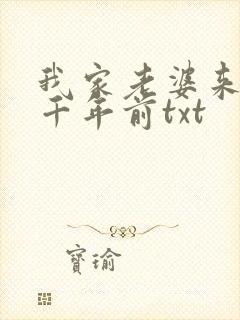 我家老婆来
千年前txt
寳瑜